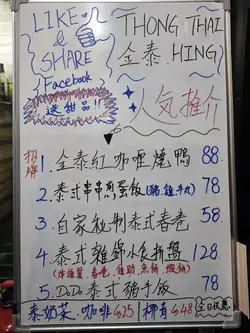 LIKE
&
SHARE
Facebook
送甜品!!
THONG THAI
金泰 HING
人気推介
招牌
1. 金泰紅咖喱燒鴨 88.
2. 泰式串串煎蛋飯 78
3. 自家秘制泰式春卷 58
4. 泰式雜錦小食拼盤 128
5. DoDo泰式豬手飯 78
泰奶茶、咖啡 $25 椰青 $48